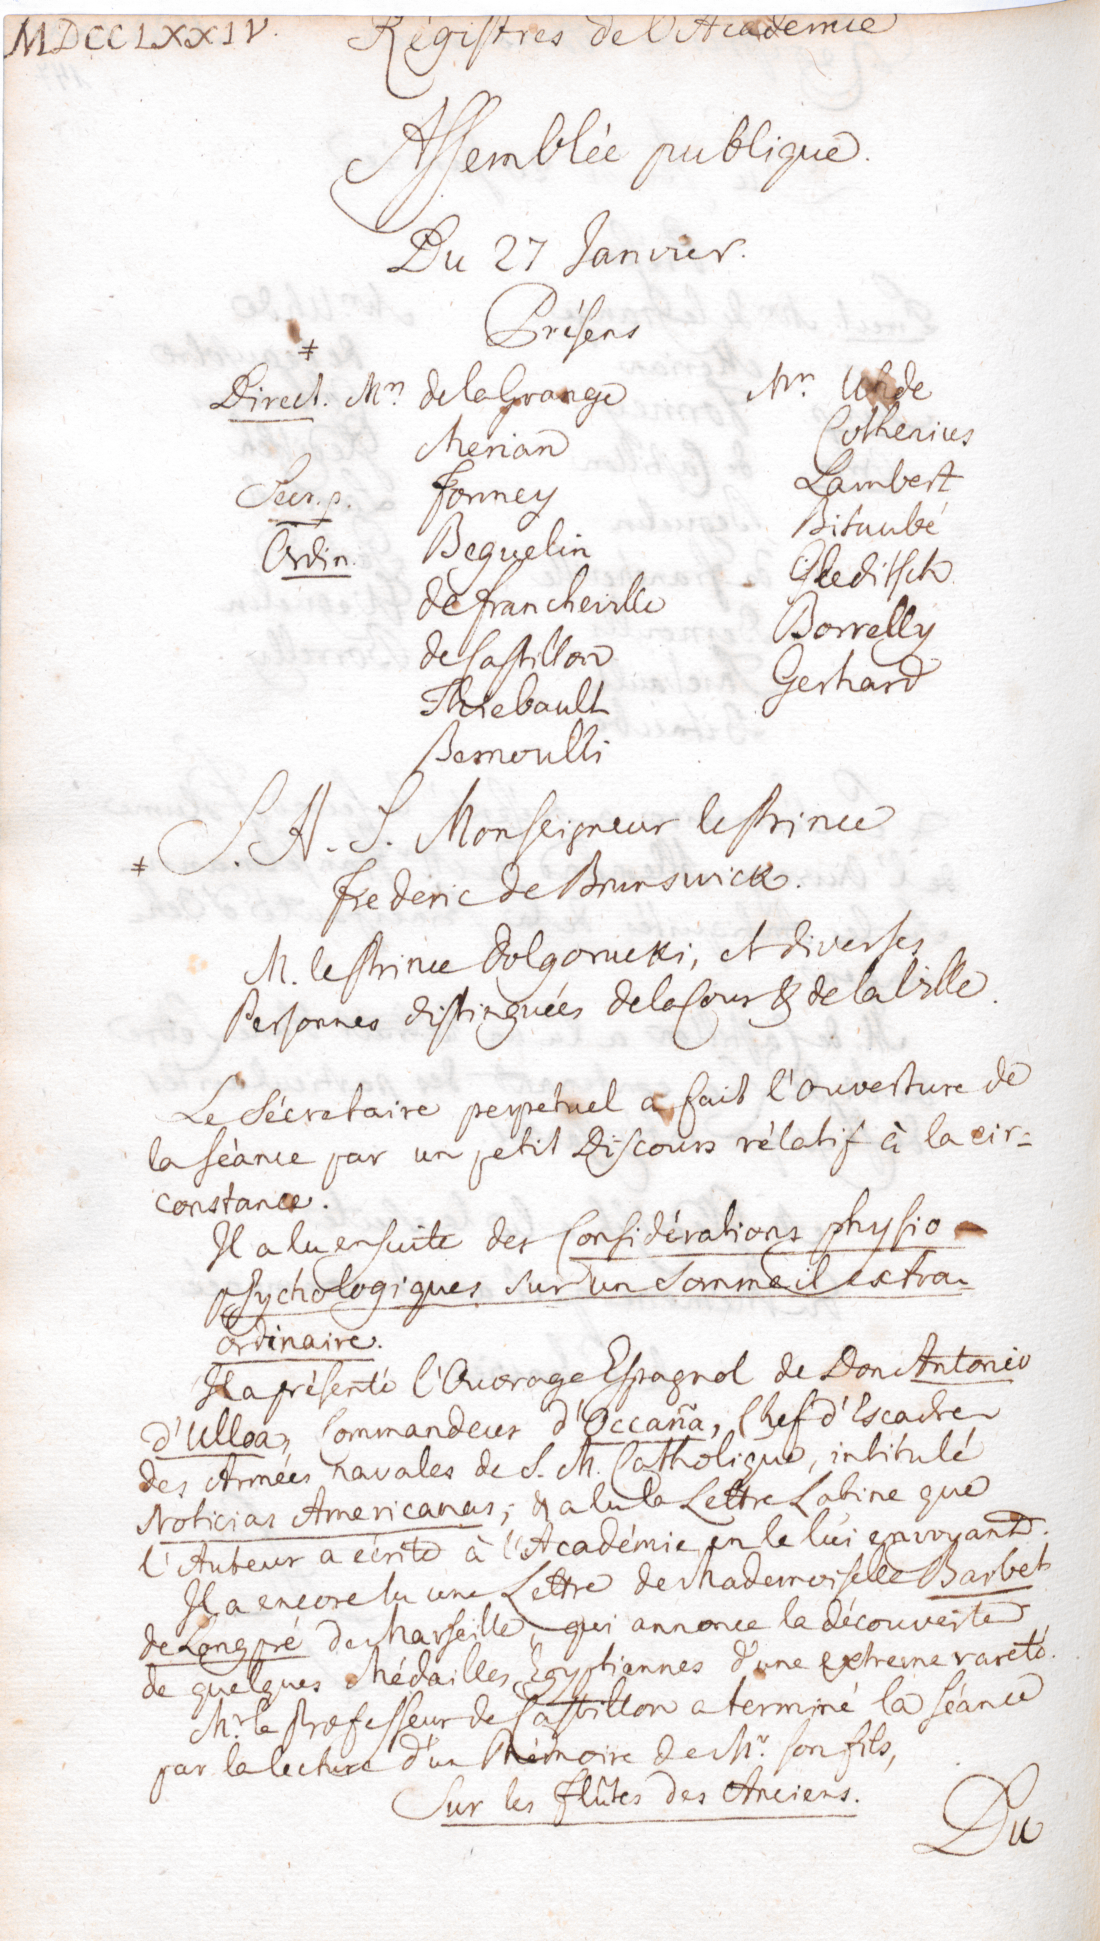 MDCCLXXIV. Régistres de l'Academie
Assemblée publique.
Du 27 Janvier.
Présens
‡
Direct. Mrs de la Grange
Merian
Secr. p. Formey
Ordin. Beguelin
de Francheville
de Castillon
Thiebault
Bernoulli
Mrs Uhde
Cothenius
Lambert
Bitaubé
Gleditsch
Borrelly
Gerhard
‡ S. A. S. Monseigneur le Prince
Frederic de Brunswick.
M. le Prince Dolgorucki, et diverses
Personnes distinguées de la Cour & de la Ville.
Le Sécretaire perpetuel a fait l'ouverture de
la Séance par un petit Discours rélatif à la cir=
constance.
Il a lu ensuite des Considérations physio-
psychologiques sur un Sommeil extra-
ordinaire.
Il a présenté l'Ouvrage Espagnol de Don Antonio
d'Ulloa, Commandeur d'Occaña, Chef d'Escadre
des Armées navales de S. M. Catholique, intitulé
Noticias Americanas; & a lu la Lettre Latine que
l'Auteur a écrite à l'Académie en le lui envoyant.
Il a encore lu une Lettre de Mademoiselle Barbet
de Longpré de Marseille, qui annonce la découverte
de quelques Médailles Egyptiennes d'une extreme rareté.
Mr. le Professeur de Castillon a terminé la Séance
par la lecture d'un Mémoire de Mr. son fils,
Sur les flûtes des Anciens.
Du